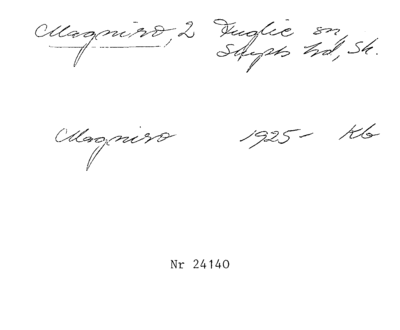 Magniso, 2 Fuglie sn,
Skytts hd, Sk.
Magniso 1925- Kb
Nr 24140